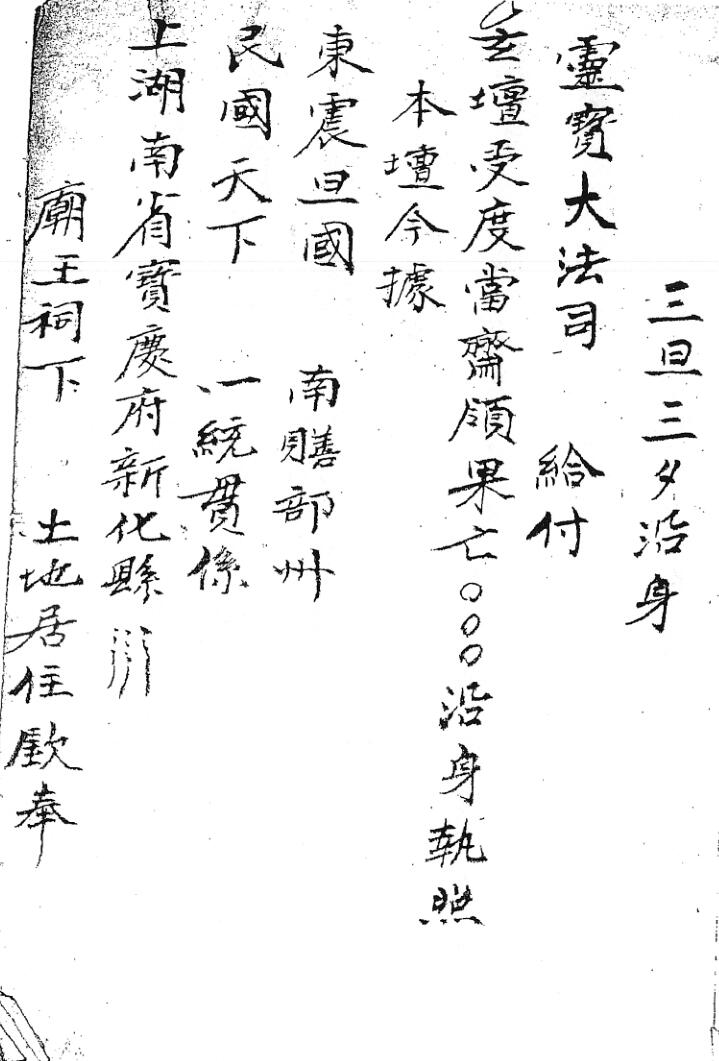 三旦三夕沿身
靈寶大法司 給付
玄壇受度當齋領果亡〇〇〇沿身執照
本壇今據
東震旦國 南贍部州
民國天下 一統貫係
上湖南省寶慶府新化縣
廟王祠下 土地居住欽奉